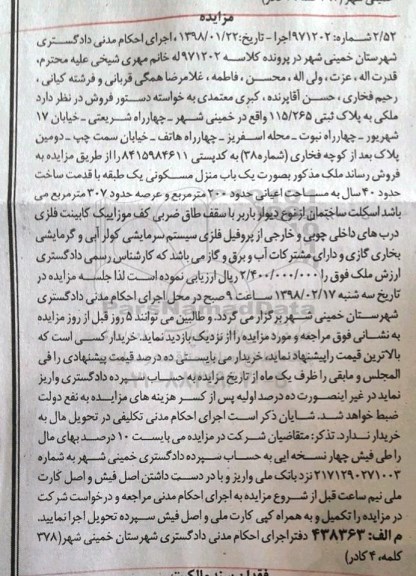 مزایده
۲/۵۲ شماره: ۹۷۱۲۰۲ اجرا - تاریخ: ۱۳۹۸/۰۱/۲۲، اجرای احکام مدنی دادگستری
شهرستان خمینی شهر در پرونده کلاسه ۹۷۱۲۰۲ له خانم مهری شیخی علیه محترم،
قدرت اله، عزت، ولی اله، محسن، فاطمه، غلامرضا همگی قربانی و فرشته کیانی،
رحیم فخاری، حسن آقاپرنده، کبری معتمدی به خواسته دستور فروش در نظر دارد
ملکی به پلاک ثبتی ۱۱۵/۲۶۵ واقع در خمینی شهر - چهارراه شریعتی - خیابان ۱۷
شهریور - چهارراه نبوت - محله اسفریز - چهارراه هاتف - خیابان سمت چپ - دومین
پلاک بعد از کوچه فخاری (شماره ۳۸) به کدپستی ۸۴۱۵۹۸۴۶۱۱ را از طریق مزایده به
فروش رساند ملک مذکور بصورت یک باب منزل مسکونی یک طبقه با قدمت ساخت
حدود ۴۰ سال به مساحت اعیانی حدود ۲۰۰ مترمربع و عرصه حدود ۳۰۷ مترمربع می
باشد اسکلت ساختمان از نوع دیوار باربر با سقف طاق ضربی کف موزاییک کابینت فلزی
درب های داخلی چوبی و خارجی از پروفیل فلزی سیستم سرمایشی کولر آبی و گرمایشی
بخاری گازی و دارای مشترکات آب و برق و گاز می باشد که کارشناس رسمی دادگستری
ارزش ملک فوق را ۲/۴۰۰/۰۰۰/۰۰۰ ریال ارزیابی نموده است لذا جلسه مزایده در
تاریخ سه شنبه ۱۳۹۸/۰۲/۱۷ ساعت ۹ صبح در محل اجرای احکام مدنی دادگستری
شهرستان خمینی شهر برگزار می گردد و طالبین می توانند ۵ روز قبل از روز مزایده
به نشانی فوق مراجعه و مورد مزایده را از نزدیک بازدید نماید. خریدار کسی است که
بالاترین قیمت را پیشنهاد نماید، خریدار می بایستی ده درصد قیمت پیشنهادی را فی
المجلس و مابقی را ظرف یک ماه از تاریخ مزایده به حساب سپرده دادگستری واریز
نماید در غیر اینصورت ده درصد اولیه پس از کسر هزینه های مزایده به نفع دولت
ضبط خواهد شد. شایان ذکر است اجرای احکام مدنی تکلیفی در تحویل مال به
خریدار ندارد. تذکر: متقاضیان شرکت در مزایده می بایست ۱۰ درصد بهای مال
را طی فیش چهار نسخه ایی به حساب سپرده دادگستری خمینی شهر به شماره
۲۱۷۱۲۹۰۲۷۱۰۰۳ نزد بانک ملی واریز و با در دست داشتن اصل فیش و اصل کارت
ملی نیم ساعت قبل از شروع مزایده به اجرای احکام مدنی مراجعه و درخواست شرکت
در مزایده را تکمیل و به همراه کپی کارت ملی و اصل فیش سپرده تحویل اجرا نمایید.
م الف: ۴۳۸۳۶۳ دفتر اجرای احکام مدنی دادگستری شهرستان خمینی شهر (۳۷۸
کلمه، ۴ کادر)